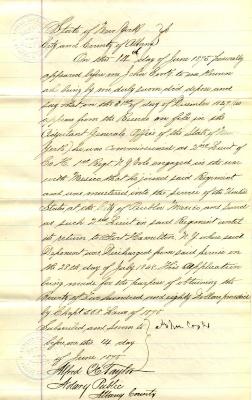 State of New York } ss
City and County of Albany
On this 12th day of June 1875 personally
appeared before me John Cook to me known
and being by me duly sworn did depose and
say that on the 31st day of December 1847 as
appears from the Records on file in the
Adjutant Generals Office of the State of New
York, he was commissioned as 2nd Lieut of
Co. 1st Regt N.Y. Vols engaged in the war
with Mexico that he joined said Regiment
and was mustered into the service of the United
States at the City of Puebla Mexico and served
as such 2nd Lieut in said Regiment until
its return to Fort Hamilton, N.Y. where said
Deponent was Discharged from said service on
the 28th day of July 1848. This application
being made for the purpose of obtaining the
Bounty of Two hundred and eighty Dollars provided
by Chapt Laws of 1875
Subscribed and sworn to } John Cook
before me this 14 day
of June 1875
Alfred C. Taylor
Notary Public
Albany County